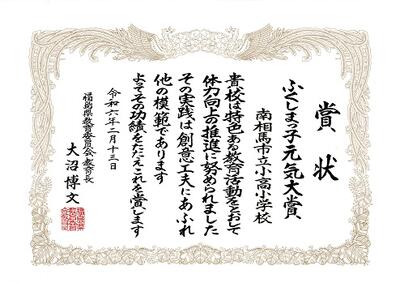 賞状
ふくしまっ子元気大賞
南相馬市立小高小学校
貴校は特色ある教育活動をとおして
体力向上の推進に努められました
その実践は創意工夫にあふれ
他の模範であります
よってその功績をたたえこれを賞します
令和六年二月十三日
福島県教育委員会教育長
大沼博文